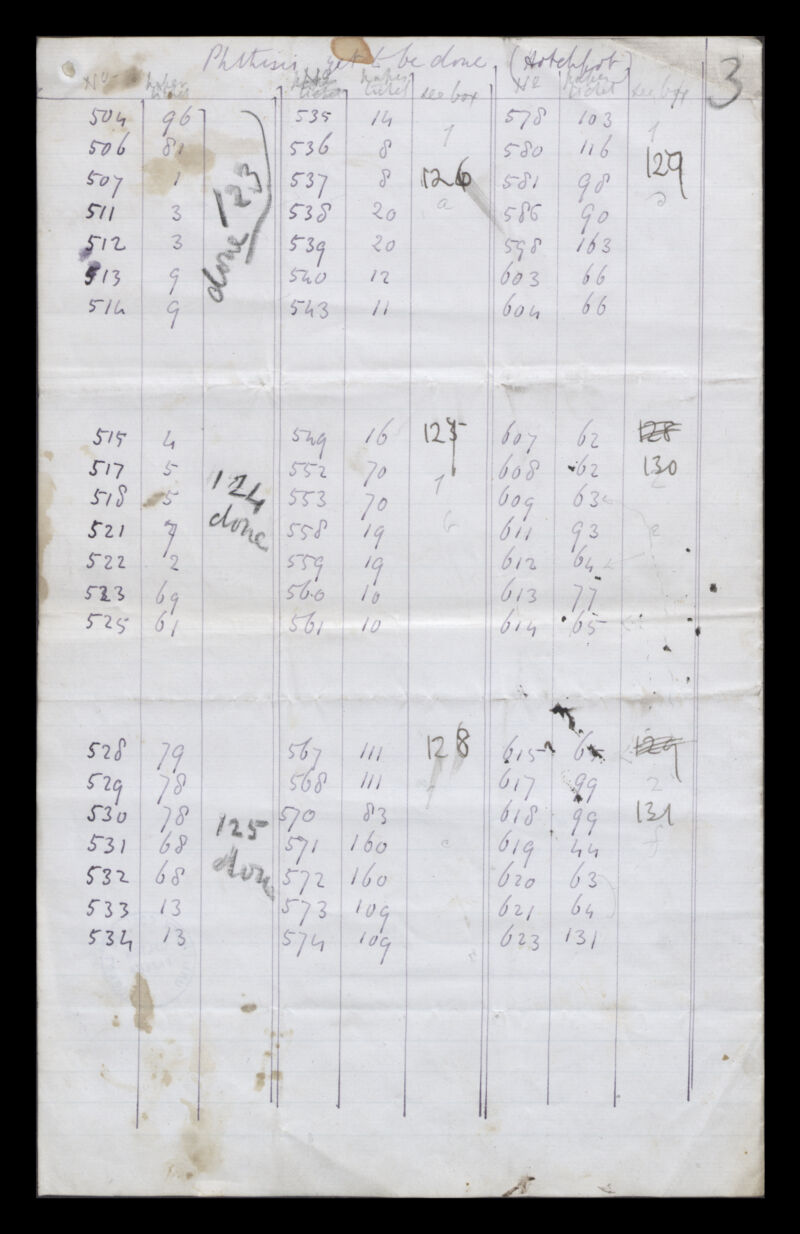 Phthisis yet to be done. (Hotchpot) 3
No paper ticket No paper ticket see box No paper ticket see box
504 96 535 14 578 103
506 81 536 8 580 116 129
507 1 done 123 537 8 126 581 98
511 3 538 20 a 586 90
512 3 539 20 598 163
513 9 540 12 603 66
514 9 543 11 604 66
515 4 549 16 607 62 128
517 5 124 552 70 608 62 130
518 5 done 553 70 609 63
521 7 558 19 611 93 e
522 2 559 19 612 64
523 69 560 10 613 77
525 61 561 10 614 65
528 79 567 111 128 615 65 129
529 78 568 111 617 99
530 78 125 570 83 618 99 131
531 68 done 571 160 619 44 f
532 68 572 160 620 63
533 13 573 109 621 64
534 13 574 109 623 131